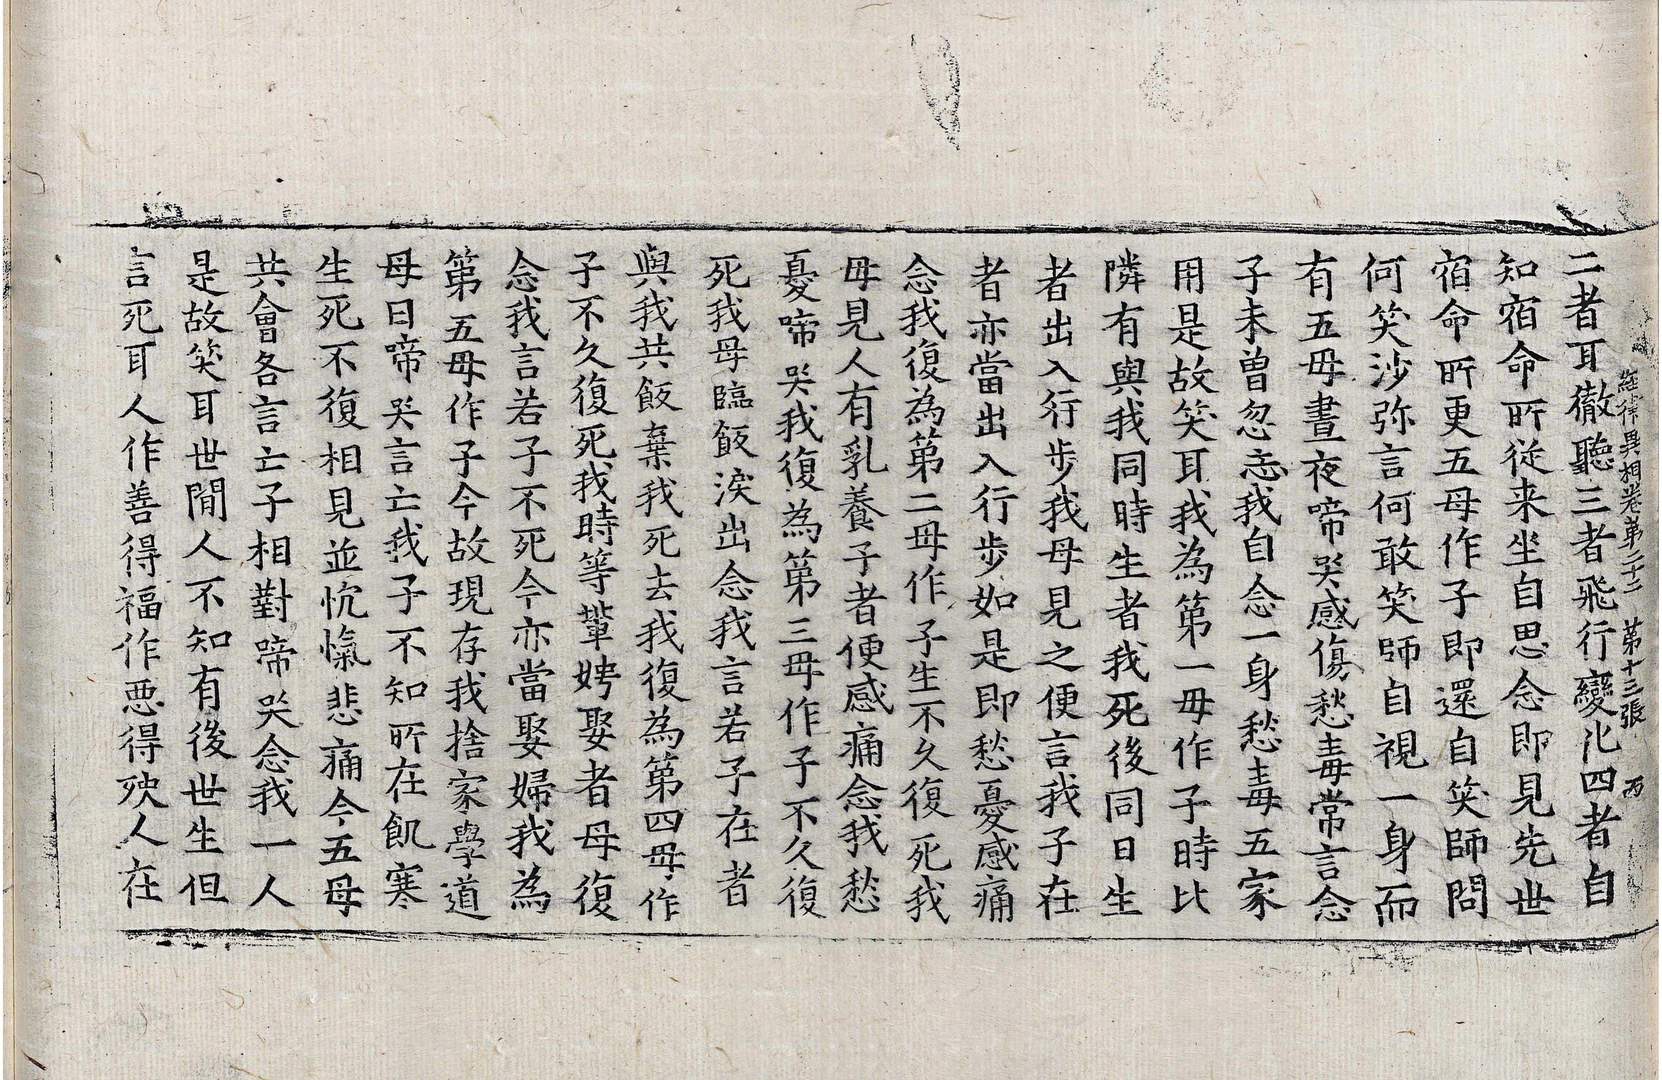 經律異相卷第二十二 第十三張 丙
二者耳徹聽三者飛行變化四者自
知宿命所從来坐自思念即見先世
宿命所更五母作子即還自笑師問
何笑沙弥言何敢笑師自視一身而
有五母晝夜啼哭感傷愁毒常言念
子未曾忽忘我自念一身愁毒五家
用是故笑耳我為第一母作子時比
隣有與我同時生者我死後同日生
者出入行步我母見之便言我子在
者亦當出入行步如是即愁憂感痛
念我復為第二母作子生不久復死我
母見人有乳養子者便感痛念我愁
憂啼哭我復為第三母作子不久復
死我母臨飯淚出念我言若子在者
與我共飯棄我死去我復為第四母作
子不久復死我時等輩娉娶者母復
念我言若子不死今亦當娶婦我為
第五母作子今故現存我捨家學道
母日啼哭言亡我子不知所在飢寒
生死不復相見並忱愾悲痛今五母
共會各言亡子相對啼哭念我一人
是故笑耳世間人不知有後世生但
言死耳人作善得福作惡得殃人在